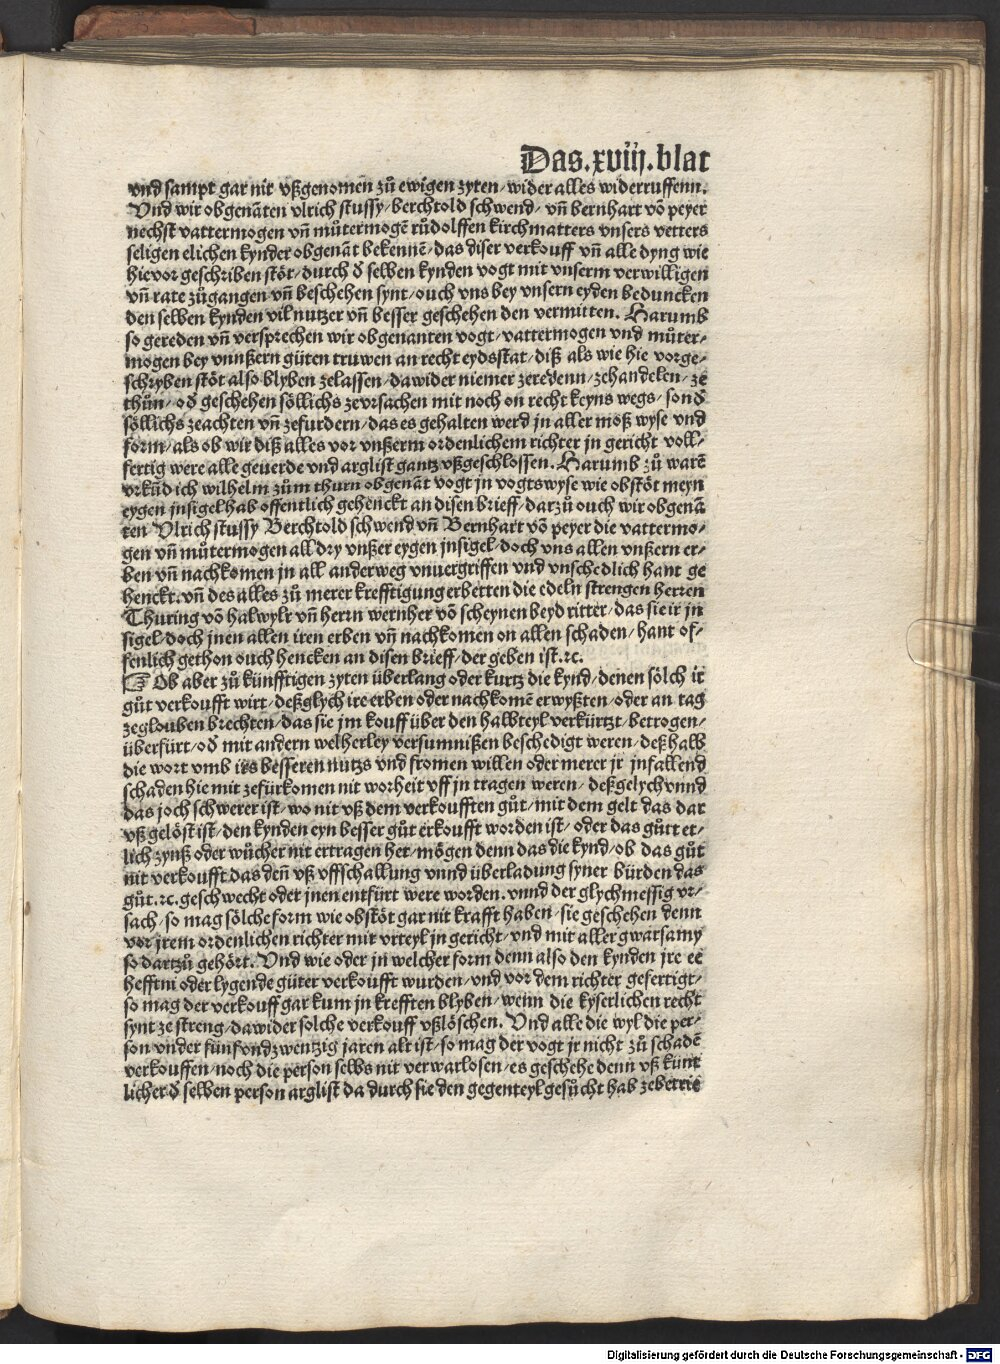 Das.xviij.blat
vnd sampt gar nit vßgenomen zů ewigen zyten/wider alles widerruffenn.
Vnd wir obgenāten vlrich stussy/berchtold schwend/vn̄ bernhart vō peyer
nechst vattermogen vn̄ můtermogē růdolffen kirchmatters vnsers vetters
seligen elichen kynder obgenāt bekennē/das diser verkouff vn̄ alle dyng wie
hievor geschriben stöt/durch d̄ selben kynden vogt mit vnserm verwilligen
vn̄ rate zůgangen vn̄ beschehen synt/ouch vns bey vnsern eyden beduncken
den selben kynden vil nutzer vn̄ besser geschehen den vermitten. Harumb
so gereden vn̄ versprechen wir obgenanten vogt/vattermogen vnd můter⸗
mogen bey vnnßern gůten truwen an recht eydsstat/diß als wie hie vorge⸗
schryben stöt also blyben zelassen/dawider niemer zeredenn/zehandelen/ze
thůn/od̄ geschehen söllichs zevrsachen mit noch on recht keyns wegs/sond̄
söllichs zeachten vn̄ zefurdern/das es gehalten werd jn aller moß wyse vnd
form/als ob wir diß alles vor vnßerm ordenlichem richter jn gericht voll⸗
fertig were alle geuerde vnd arglist gantz vßgeschlossen. Harumb zů warē
vrkūd ich wilhelm zům thurn obgenāt vogt jn vogtswyse wie obstöt meyn
eygen jnsigel hab offentlich gehenckt an disen brieff/darzů ouch wir obgenā
ten Vlrich stussy Berchtold schwend vn̄ Bernhart vō peyer die vattermo⸗
gen vn̄ můtermogen all dry vnßer eygen jnsigel/doch vns allen vnßern er⸗
ben vn̄ nachkomen jn all anderweg vnuergriffen vnd vnschedlich hant ge
henckt.vn̄ des alles zů merer krefftigung erbetten die edeln strengen herren
Thuring vō halwylr vn̄ herrn wernher vō scheynen beyd ritter/das sie ir jn
sigel/doch jnen allen iren erben vn̄ nachkomen on allen schaden/hant of⸗
fenlich gethon ouch hencken an disen brieff/der geben ist.⁊c.
☞ Ob aber zů künfftigen zyten überlang oder kurtz die kynd/denen sölch ir
gůt verkoufft wirt/deßglych ire erben oder nachkomē erwyßten/oder an tag
zeglouben brechten/das sie jm kouff über den halbteyl verkürtzt/betrogen/
überfürt/od̄ mit andern welherley versumnißen beschedigt weren/deßhalb
die wort vmb irs besseren nutzs vnd fromen willen oder merer jr jnfallend
schaden hie mit zefürkomen nit worheit vff jn tragen weren/deßgelych vnnd
das joch schwerer ist/wo nit vß dem verkoufften gůt/mit dem gelt das dar
vß gelöst ist/den kynden eyn besser gůt erkoufft worden ist/oder das gůtt et⸗
lich zynß oder wůcher nit ertragen het/mögen denn das die kynd/ob das gůt
nit verkoufft das den̄ vß vffschallung vnnd überladung syner bürden das
gůt.⁊c.geschwecht oder jnen entfürt were worden.vnnd der glychmessig vr⸗
sach/so mag sölche form wie obstöt gar nit krafft haben/sie geschehen denn
vor jrem ordenlichen richter mit vrteyl jn gericht/vnd mit aller gwarsamy
so dartzů gehört. Vnd wie oder jn welcher form denn also den kynden jre ee
hefftni oder lygende güter verkoufft wurden/vnd vor dem richter gefertigt/
so mag der verkouff gar kum jn krefften blyben/wenn die kyserlichen recht
synt ze streng/dawider solche verkouff vßlöschen. Vnd alle die wyl die per⸗
son vnder fünfvndzwentzig jaren alt ist/so mag der vogt jr nicht zů schadē
verkouffen/noch die person selbs nit verwarlosen/es geschehe denn vß künt
licher d̄ selben person arglist da durch sie den gegenteyl gesůcht hab zebetrie
Digitalisierung gefördert durch die Deutsche Forschungsgemeinschaft - DFG